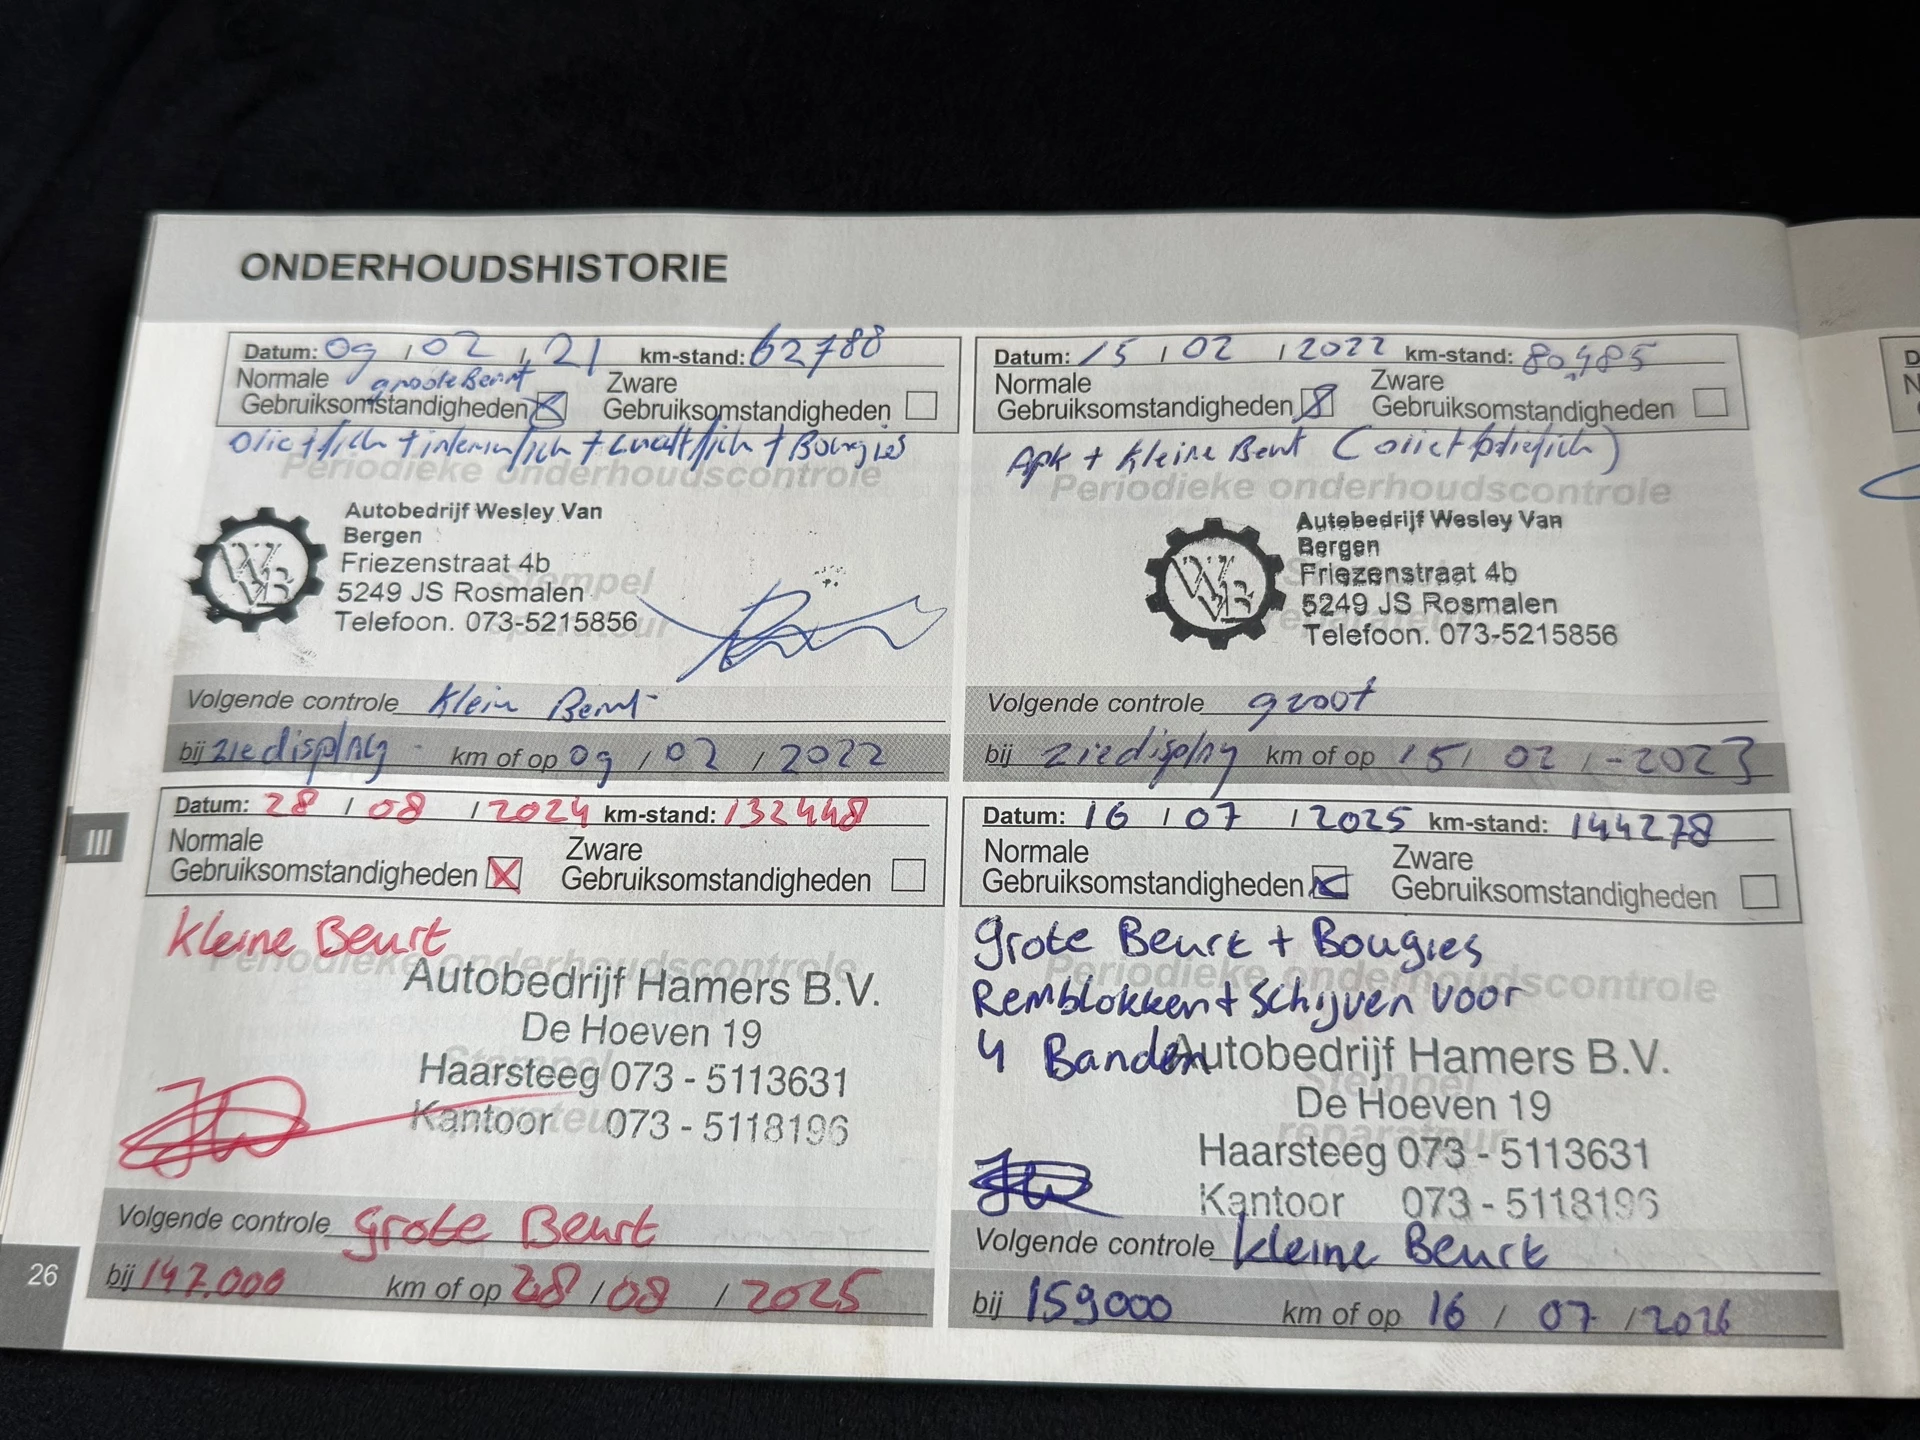 ONDERHOUDSHISTORIE
Datum: 09 / 02 / 21 km-stand: 62788
Normale groote Beurt Zware
Gebruiksomstandigheden Gebruiksomstandigheden
Periodieke onderhoudscontrole
Autobedrijf Wesley Van
Bergen
Friezenstraat 4b
5249 JS Rosmalen
Telefoon. 073-5215856
Stempel
reparateur
Volgende controle Klein Beurt
bij zie display km of op 09 / 02 / 2022
Datum: 15 / 02 / 2022 km-stand: 80.485
Normale Zware
Gebruiksomstandigheden Gebruiksomstandigheden
Apk + Kleine Beurt
Periodieke onderhoudscontrole
Autobedrijf Wesley Van
Bergen
Friezenstraat 4b
5249 JS Rosmalen
Telefoon. 073-5215856
Volgende controle groot
bij zie display km of op 15 / 02 / - 2023
III
Datum: 28 / 08 / 2024 km-stand: 132448
Normale Zware
Gebruiksomstandigheden Gebruiksomstandigheden
kleine Beurt
Periodieke onderhoudscontrole
Autobedrijf Hamers B.V.
De Hoeven 19
Haarsteeg 073 - 5113631
Kantoor 073 - 5118196
Stempel
reparateur
Volgende controle Grote Beurt
bij 147.000 km of op 28 / 08 / 2025
Datum: 16 / 07 / 2025 km-stand: 144278
Normale Zware
Gebruiksomstandigheden Gebruiksomstandigheden
grote Beurt + Bougies
Periodieke onderhoudscontrole
Remblokken + Schijven voor
4 Banden
Autobedrijf Hamers B.V.
Stempel
De Hoeven 19
reparateur
Haarsteeg 073 - 5113631
Kantoor 073 - 5118196
Volgende controle kleine Beurt
bij 159000 km of op 16 / 07 / 2026
26